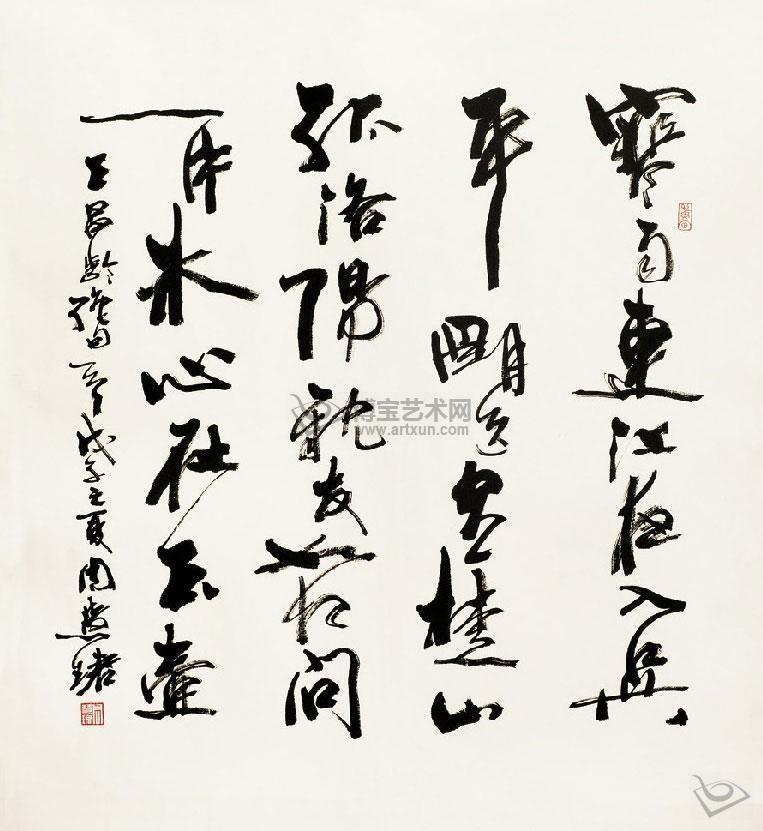 寒雨連江夜入吳
平明送客楚山
孤洛陽親友如相問
一片冰心在玉壺
王昌齡絕句一首戊子之夏周慧珺
博宝艺术网
www.artxun.com